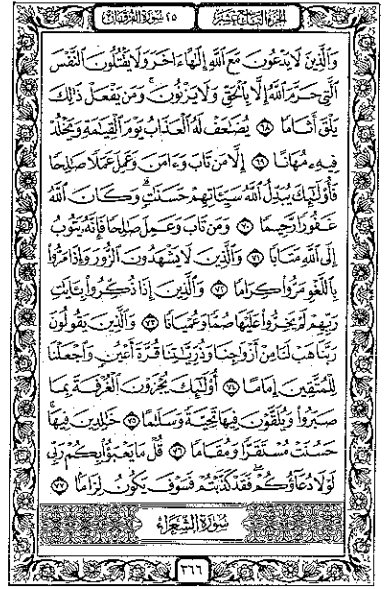 الجزء التاسع عشر ٢٥ سورة الفرقان
وَالَّذِينَ لَا يَدْعُونَ مَعَ اللَّهِ إِلَٰهًا ءَاخَرَ وَلَا يَقْتُلُونَ النَّفْسَ
الَّتِي حَرَّمَ اللَّهُ إِلَّا بِالْحَقِّ وَلَا يَزْنُونَ ۚ وَمَن يَفْعَلْ ذَٰلِكَ
يَلْقَ أَثَامًا ٦٨ يُضَٰعَفْ لَهُ الْعَذَابُ يَوْمَ الْقِيَٰمَةِ وَيَخْلُدْ
فِيهِۦ مُهَانًا ٦٩ إِلَّا مَن تَابَ وَءَامَنَ وَعَمِلَ عَمَلًا صَٰلِحًا
فَأُو۟لَٰٓئِكَ يُبَدِّلُ اللَّهُ سَيِّـَٔاتِهِمْ حَسَنَٰتٍ ۗ وَكَانَ اللَّهُ
غَفُورًا رَّحِيمًا ٧٠ وَمَن تَابَ وَعَمِلَ صَٰلِحًا فَإِنَّهُۥ يَتُوبُ
إِلَى اللَّهِ مَتَابًا ٧١ وَالَّذِينَ لَا يَشْهَدُونَ الزُّورَ وَإِذَا مَرُّوا۟
بِاللَّغْوِ مَرُّوا۟ كِرَامًا ٧٢ وَالَّذِينَ إِذَا ذُكِّرُوا۟ بِـَٔايَٰتِ
رَبِّهِمْ لَمْ يَخِرُّوا۟ عَلَيْهَا صُمًّا وَعُمْيَانًا ٧٣ وَالَّذِينَ يَقُولُونَ
رَبَّنَا هَبْ لَنَا مِنْ أَزْوَٰجِنَا وَذُرِّيَّٰتِنَا قُرَّةَ أَعْيُنٍ وَاجْعَلْنَا
لِلْمُتَّقِينَ إِمَامًا ٧٤ أُو۟لَٰٓئِكَ يُجْزَوْنَ الْغُرْفَةَ بِمَا
صَبَرُوا۟ وَيُلَقَّوْنَ فِيهَا تَحِيَّةً وَسَلَٰمًا ٧٥ خَٰلِدِينَ فِيهَا ۚ
حَسُنَتْ مُسْتَقَرًّا وَمُقَامًا ٧٦ قُلْ مَا يَعْبَؤُا۟ بِكُمْ رَبِّي
لَوْلَا دُعَآؤُكُمْ ۖ فَقَدْ كَذَّبْتُمْ فَسَوْفَ يَكُونُ لِزَامًا ٧٧
سُورَةُ الشُّعَرَاء
٣٦٦